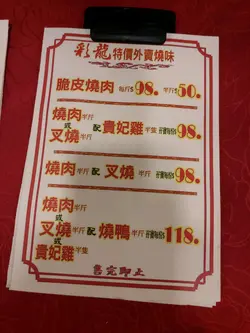 彩龍 特價外賣燒味
脆皮燒肉 每斤$98. 半斤$50.
燒肉半斤
或 配 貴妃雞半隻 $98.
叉燒半斤
燒肉半斤 配 叉燒半斤 $98.
燒肉半斤
或
叉燒半斤 配 燒鴨半隻 $118.
或
貴妃雞半隻
售完即止